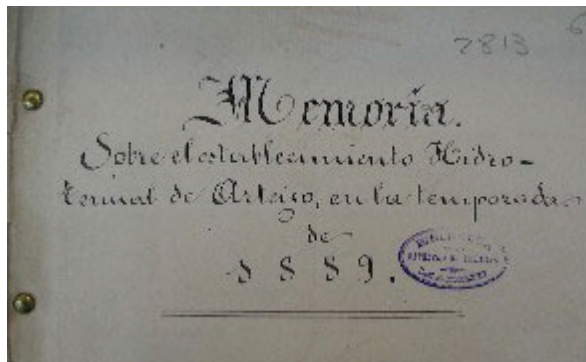 7813
Memoria.
Sobre el establecimiento Hidro-
termal de Arteijo, en la temporada
de
1889.